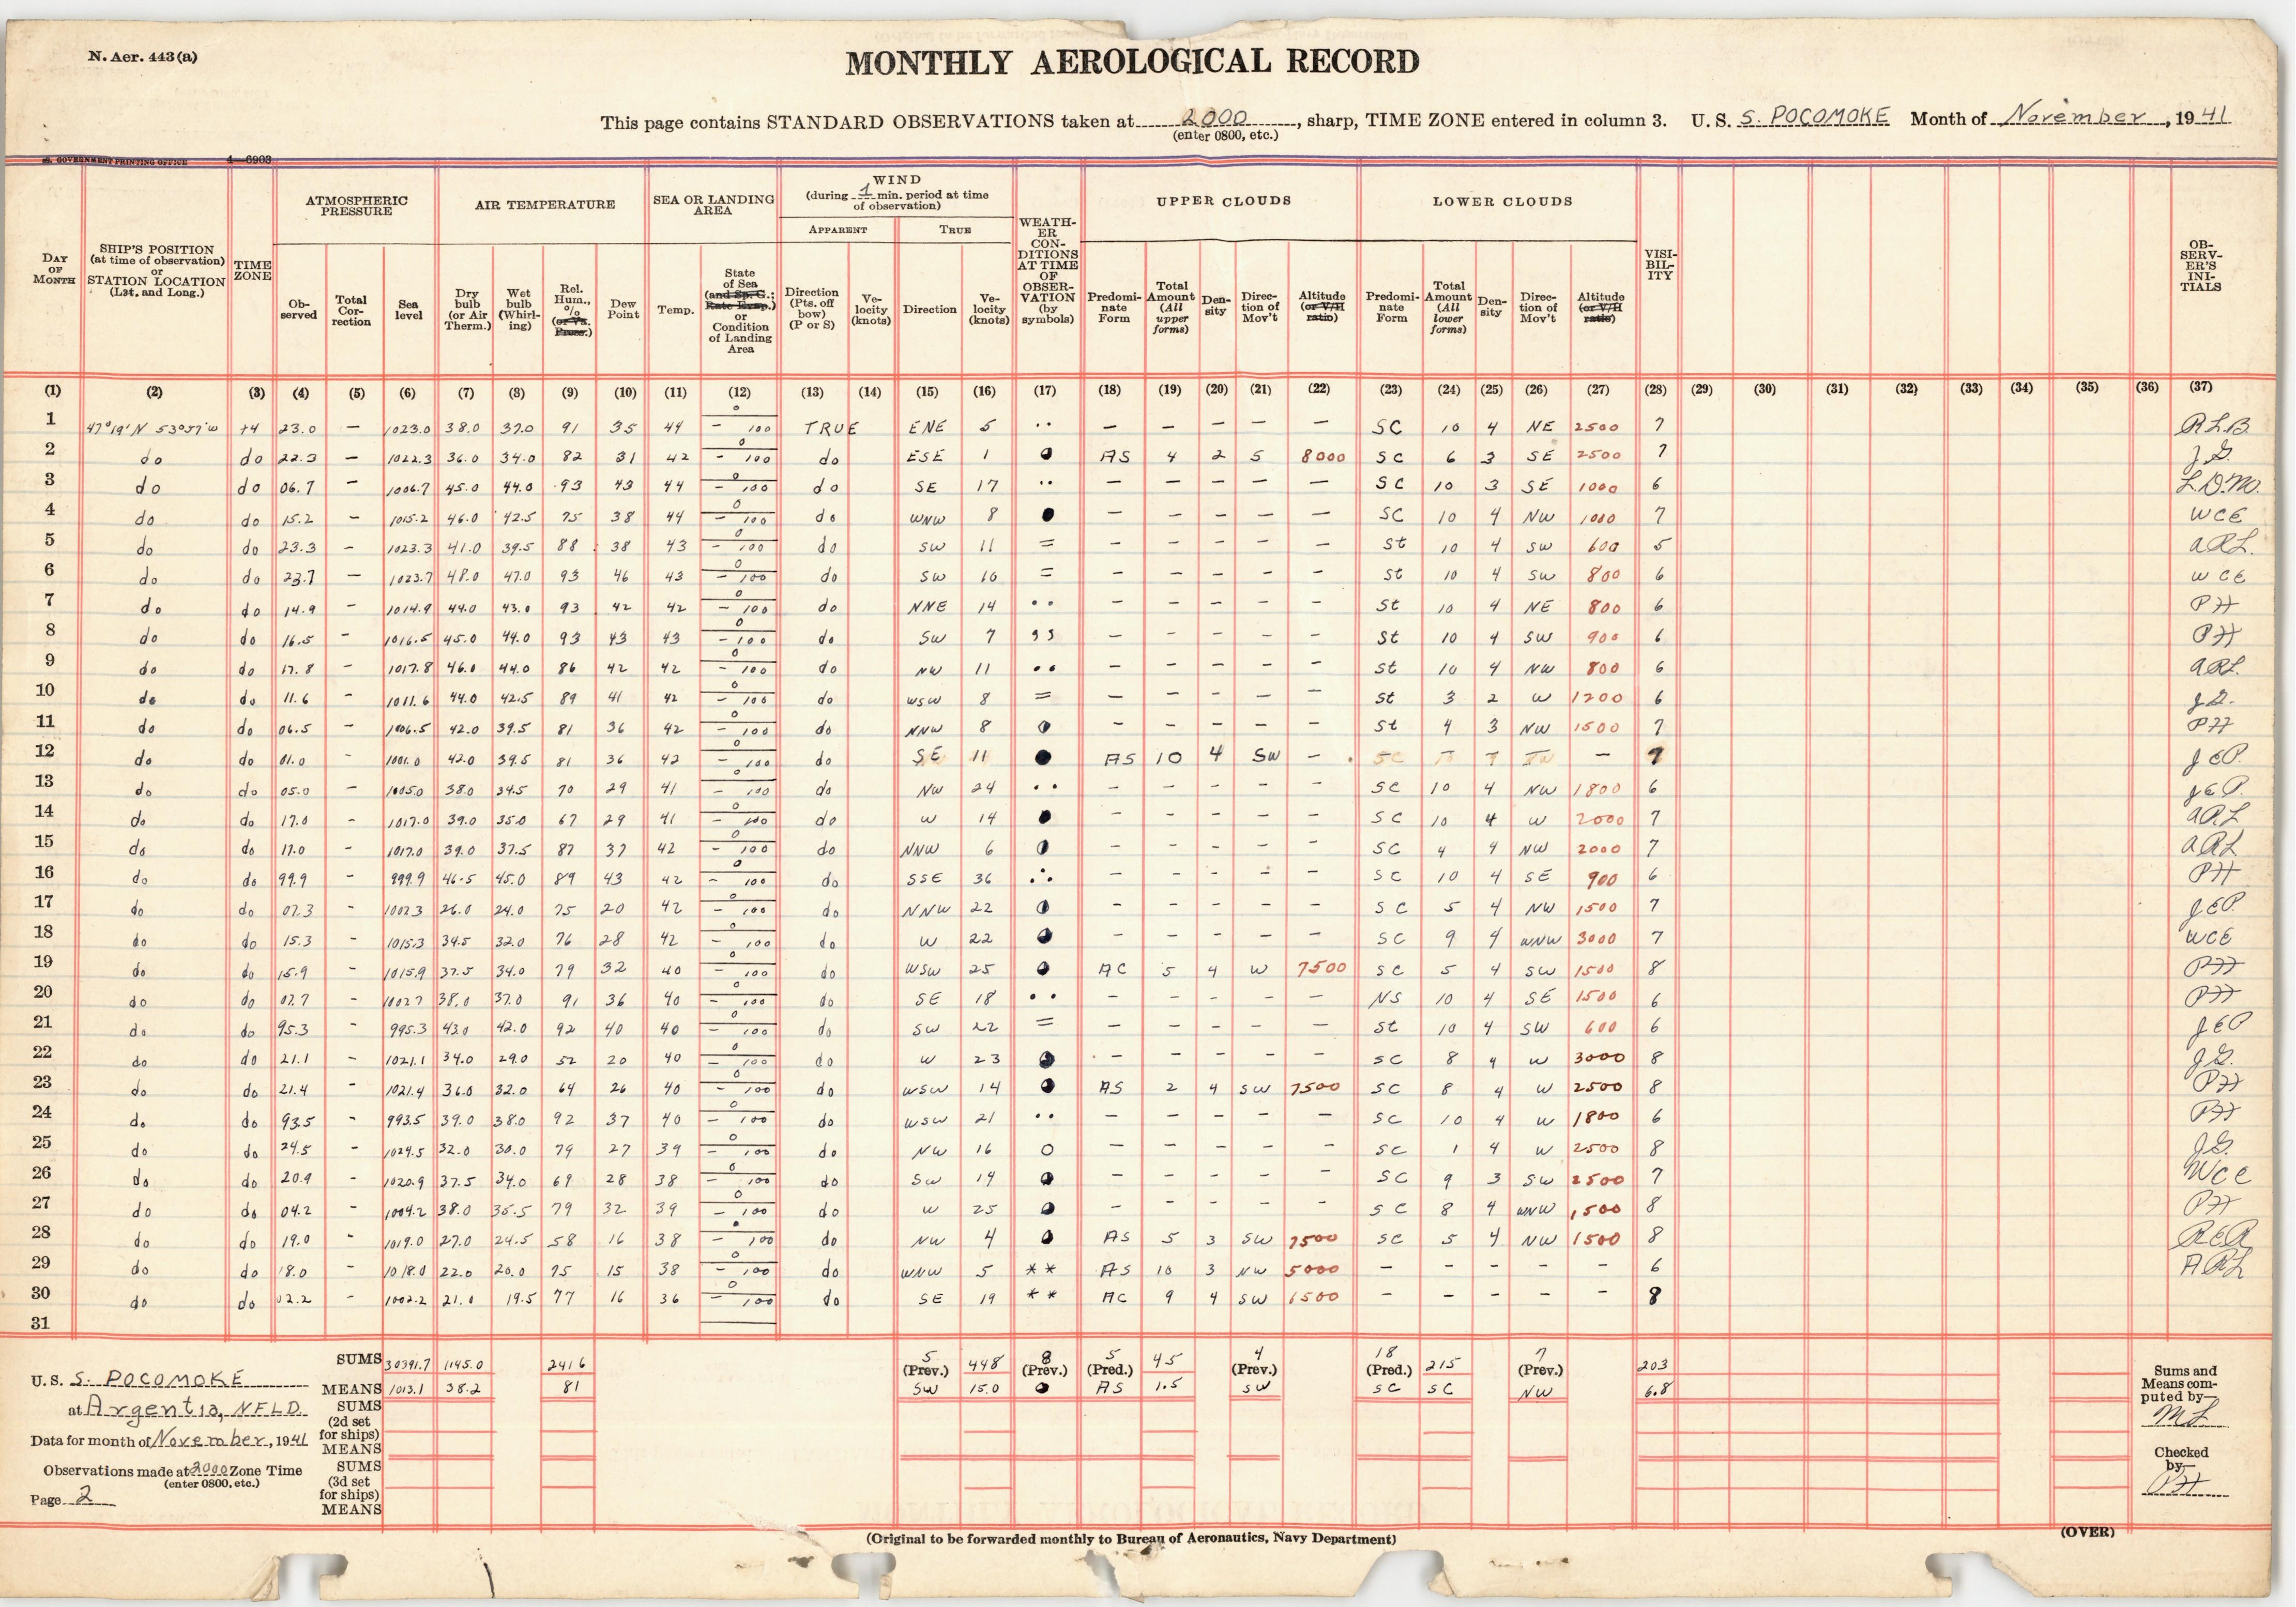 N. Aer. 443(a)
MONTHLY AEROLOGICAL RECORD
This page contains STANDARD OBSERVATIONS taken at 2000, sharp, TIME ZONE entered in column 3. U. S. S. POCOMOKE Month of November, 1941
(enter 0800, etc.)
U.S. GOVERNMENT PRINTING OFFICE 4—6903
DAY OF MONTH
SHIP'S POSITION (at time of observation) or STATION LOCATION (Lat. and Long.)
TIME ZONE
ATMOSPHERIC PRESSURE
Observed
Total Correction
Sea level
AIR TEMPERATURE
Dry bulb (or Air Therm.)
Wet bulb (Whirling)
Rel. Hum., % (or Va. Press.)
Dew Point
SEA OR LANDING AREA
Temp.
State of Sea (and Sp. G.; Rate Evap.) or Condition of Landing Area
WIND
(during 1 min. period at time of observation)
APPARENT
Direction (Pts. off bow) (P or S)
Velocity (knots)
TRUE
Direction
Velocity (knots)
WEATHER CONDITIONS AT TIME OF OBSERVATION (by symbols)
UPPER CLOUDS
Predominate Form
Total Amount (All upper forms)
Density
Direction of Mov't
Altitude (or V/H ratio)
LOWER CLOUDS
Predominate Form
Total Amount (All lower forms)
Density
Direction of Mov't
Altitude (or V/H ratio)
VISIBILITY
OBSERVER'S INITIALS
(1) (2) (3) (4) (5) (6) (7) (8) (9) (10) (11) (12) (13) (14) (15) (16) (17) (18) (19) (20) (21) (22) (23) (24) (25) (26) (27) (28) (29) (30) (31) (32) (33) (34) (35) (36) (37)
1 47°19'N 53°57'W +4 23.0 - 1023.0 38.0 37.0 91 35 44 0 - 100 TRUE ENE 5 •• - - - - - SC 10 4 NE 2500 7 RLB
2 do do 22.3 - 1022.3 36.0 34.0 82 31 42 0 - 100 do ESE 1 AS 4 2 S 8000 SC 6 3 SE 2500 7 J.G.
3 do do 06.7 - 1006.7 45.0 44.0 93 43 44 0 - 100 do SE 17 •• - - - - - SC 10 3 SE 1000 6 L.D.M.
4 do do 15.2 - 1015.2 46.0 42.5 75 38 44 0 - 100 do WNW 8 ● - - - - - SC 10 4 NW 1000 7 WCE
5 do do 23.3 - 1023.3 41.0 39.5 88 38 43 0 - 100 do SW 11 = - - - - - St 10 4 SW 600 5 ARL.
6 do do 23.7 - 1023.7 48.0 47.0 93 46 43 0 - 100 do SW 10 = - - - - - St 10 4 SW 800 6 WCE
7 do do 14.9 - 1014.9 44.0 43.0 93 42 42 0 - 100 do NNE 14 •• - - - - - St 10 4 NE 800 6 PH
8 do do 16.5 - 1016.5 45.0 44.0 93 43 43 0 - 100 do SW 7 ,, - - - - - St 10 4 SW 900 6 PH
9 do do 17.8 - 1017.8 46.0 44.0 86 42 42 0 - 100 do NW 11 •• - - - - - St 10 4 NW 800 6 ARL
10 do do 11.6 - 1011.6 44.0 42.5 89 41 42 0 - 100 do WSW 8 = - - - - - St 3 2 W 1200 6 J.G.
11 do do 06.5 - 1006.5 42.0 39.5 81 36 42 0 - 100 do NNW 8 ◑ - - - - - St 4 3 NW 1500 7 PH
12 do do 01.0 - 1001.0 42.0 39.5 81 36 42 0 - 100 do SE 11 ● AS 10 4 SW - - 9 JEP.
13 do do 05.0 - 1005.0 38.0 34.5 70 29 41 0 - 100 do NW 24 •• - - - - - SC 10 4 NW 1800 6 JEP.
14 do do 17.0 - 1017.0 39.0 35.0 67 29 41 0 - 100 do W 14 ● - - - - - SC 10 4 W 2000 7 ARL
15 do do 17.0 - 1017.0 39.0 37.5 87 37 42 0 - 100 do NNW 6 ◑ - - - - - SC 4 4 NW 2000 7 ARL
16 do do 99.9 - 999.9 46.5 45.0 89 43 42 0 - 100 do SSE 36 ∴ - - - - - SC 10 4 SE 900 6 PH
17 do do 07.3 - 1007.3 26.0 24.0 75 20 42 0 - 100 do NNW 22 ◑ - - - - - SC 5 4 NW 1500 7 JEP
18 do do 15.3 - 1015.3 34.5 32.0 76 28 42 0 - 100 do W 22 - - - - - SC 9 4 WNW 3000 7 WCE
19 do do 15.9 - 1015.9 37.5 34.0 79 32 40 0 - 100 do WSW 25 AC 5 4 W 7500 SC 5 4 SW 1500 8 PH
20 do do 02.7 - 1002.7 38.0 37.0 91 36 40 0 - 100 do SE 18 •• - - - - - NS 10 4 SE 1500 6 PH
21 do do 95.3 - 995.3 43.0 42.0 92 40 40 0 - 100 do SW 22 = - - - - - St 10 4 SW 600 6 JEP
22 do do 21.1 - 1021.1 34.0 29.0 52 20 40 0 - 100 do W 23 - - - - - SC 8 4 W 3000 8 J.G.
23 do do 21.4 - 1021.4 36.0 32.0 64 26 40 0 - 100 do WSW 14 AS 2 4 SW 7500 SC 8 4 W 2500 8 PH
24 do do 93.5 - 993.5 39.0 38.0 92 37 40 0 - 100 do WSW 21 •• - - - - - SC 10 4 W 1800 6 PH
25 do do 24.5 - 1024.5 32.0 30.0 79 27 39 0 - 100 do NW 16 ○ - - - - - SC 1 4 W 2500 8 J.G.
26 do do 20.9 - 1020.9 37.5 34.0 69 28 38 0 - 100 do SW 14 - - - - - SC 9 3 SW 2500 7 WCE
27 do do 04.2 - 1004.2 38.0 35.5 79 32 39 0 - 100 do W 25 - - - - - SC 8 4 WNW 1500 8 PH
28 do do 19.0 - 1019.0 27.0 24.5 58 16 38 0 - 100 do NW 4 AS 5 3 SW 7500 SC 5 4 NW 1500 8 RER
29 do do 18.0 - 1018.0 22.0 20.0 75 15 38 0 - 100 do WNW 5 ** AS 10 3 NW 5000 - - - - - 6 ARL
30 do do 02.2 - 1002.2 21.0 19.5 77 16 36 0 - 100 do SE 19 ** AC 9 4 SW 6500 - - - - - 8
31
SUMS 30391.7 1145.0 2416 5 (Prev.) 448 8 (Prev.) 5 (Pred.) 45 4 (Prev.) 18 (Pred.) 215 7 (Prev.) 203
MEANS 1013.1 38.2 81 SW 15.0 AS 1.5 SW SC SC NW 6.8
SUMS (2d set for ships) MEANS
SUMS (3d set for ships) MEANS
U. S. S. POCOMOKE
at Argentia, NFLD.
Data for month of November, 1941
Observations made at 2000 Zone Time
(enter 0800, etc.)
Page 2
Sums and Means computed by—
ML
Checked by—
PH
(Original to be forwarded monthly to Bureau of Aeronautics, Navy Department)
(OVER)